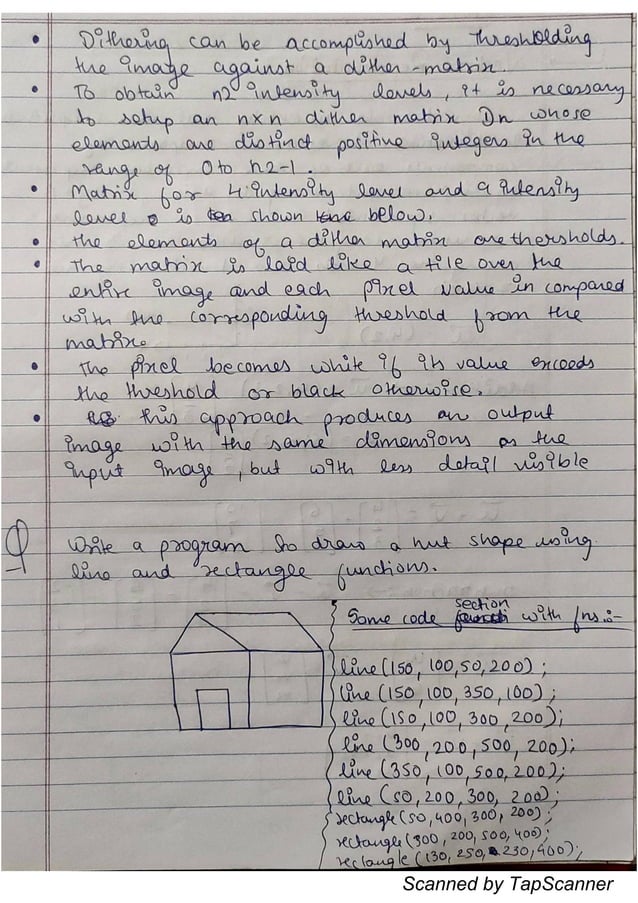 • Dithering can be accomplished by thresholding
the image against a dither-matrix.
• To obtain n2 intensity levels, it is necessary
to setup an nxn dither matrix Dn whose
elements are distinct positive integers in the
range of 0 to n2-1.
• Matrix for 4 intensity level and 9 intensity
level is shown below.
• the elements of a dither matrix are thersholds.
• The matrix is laid like a tile over the
entire image and each pixel value in compared
with the corresponding threshold from the
matrix.
• The pixel becomes white if its value exceeds
the threshold or black otherwise.
• this approach produces an output
image with the same dimensions as the
input image, but with less detail visible
Q Write a program to draw a hut shape using
line and rectangle functions.
Some code section with fns :-
line(150, 100, 50, 200);
line(150, 100, 350, 100);
line(150, 100, 300, 200);
line(300, 200, 500, 200);
line(350, 100, 500, 200);
line(50, 200, 300, 200);
rectangle(50, 400, 300, 200);
rectangle(300, 200, 500, 400);
rectangle(130, 250, 230, 400);
Scanned by TapScanner